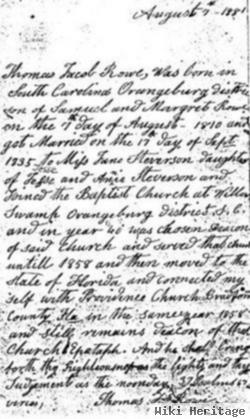 August 7th 1881
Thomas Jacob Rowe, was born in
South Carolina Orangeburg district
son of Samuel and Margret Rowe
on the 7th day of August 1810 and
got Married on the 17th day of Sept
1835 To Miss Jane Steverson daughter
of Jesse and Steverson and
Joined the Baptist Church at Willow
Swamp Orangeburg district S. C.
and in year 40 was chosen Deacon
of said church and served that church
untill 1858 and then moved to the
State of Florida and connected my
self with Providence Church
County Fla in the same year 1858
and Still remains deacon of
Church Epataph. And he shall
forth thy righteousness as the light and thy
Judgement as the noonday
verses, Thomas J. Rowe
Wiki Hobert